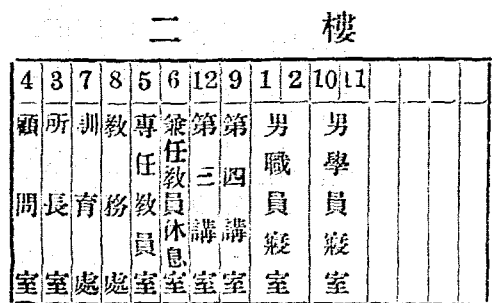 二樓
4 3 7 8 5 6 12 9 1 2 10 11
顧問室
所長室
訓育處
教務處
專任教員室
兼任教員休息室
第三講室
第四講室
男職員寢室
男學員寢室